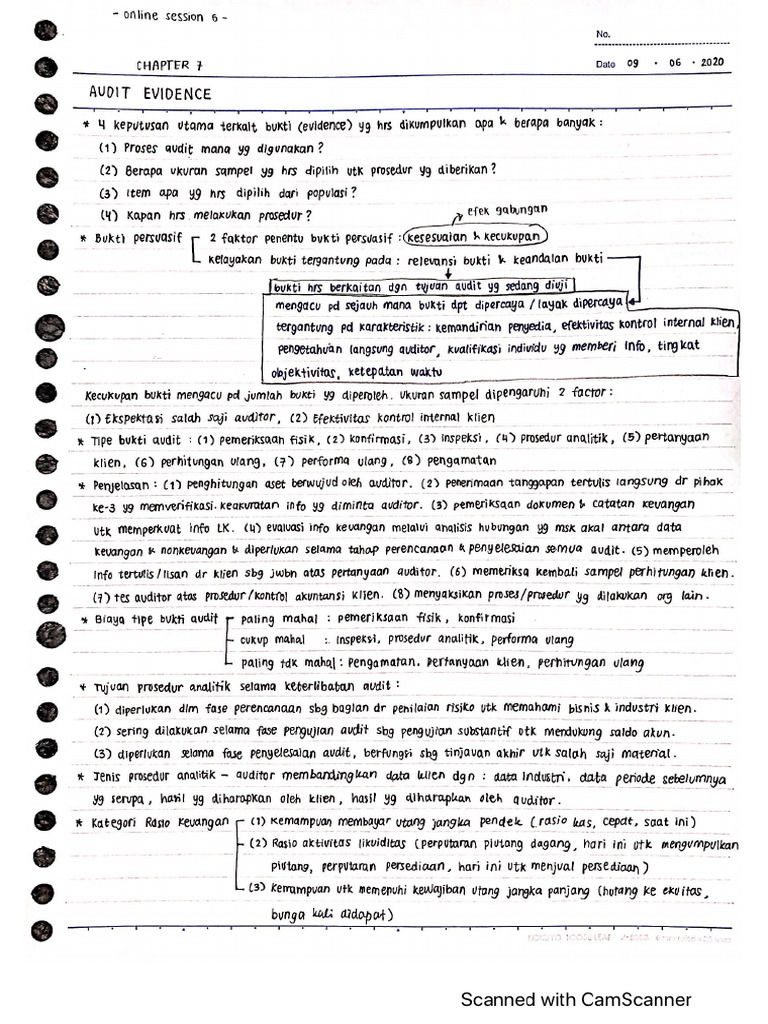 - online session 6 -
No.
CHAPTER 7
Date 09 · 06 · 2020
AUDIT EVIDENCE
* 4 keputusan utama terkait bukti (evidence) yg hrs dikumpulkan apa & berapa banyak :
(1) Proses audit mana yg digunakan ?
(2) Berapa ukuran sampel yg hrs dipilih utk prosedur yg diberikan ?
(3) Item apa yg hrs dipilih dari populasi ?
(4) Kapan hrs melakukan prosedur ?
efek gabungan
* Bukti persuasif 2 faktor penentu bukti persuasif : kesesuaian & kecukupan
kelayakan bukti tergantung pada : relevansi bukti & keandalan bukti
bukti hrs berkaitan dgn tujuan audit yg sedang diuji
mengacu pd sejauh mana bukti dpt dipercaya / layak dipercaya
tergantung pd karakteristik : kemandirian penyedia, efektivitas kontrol internal klien,
pengetahuan langsung auditor, kualifikasi individu yg memberi info, tingkat
objektivitas, ketepatan waktu
Kecukupan bukti mengacu pd jumlah bukti yg diperoleh. ukuran sampel dipengaruhi 2 factor :
(1) Ekspektasi salah saji auditor, (2) Efektivitas kontrol internal klien
* Tipe bukti audit : (1) pemeriksaan fisik, (2) konfirmasi, (3) inspeksi, (4) prosedur analitik, (5) pertanyaan
klien, (6) perhitungan ulang, (7) performa ulang, (8) pengamatan
* Penjelasan : (1) penghitungan aset berwujud oleh auditor. (2) penerimaan tanggapan tertulis langsung dr pihak
ke-3 yg memverifikasi keakuratan info yg diminta auditor. (3) pemeriksaan dokumen & catatan keuangan
utk memperkuat info LK. (4) evaluasi info keuangan melalui analisis hubungan yg msk akal antara data
keuangan & nonkeuangan & diperlukan selama tahap perencanaan & penyelesaian semua audit. (5) memperoleh
info tertulis/lisan dr klien sbg jwbn atas pertanyaan auditor. (6) memeriksa kembali sampel perhitungan klien.
(7) tes auditor atas prosedur/kontrol akuntansi klien. (8) menyaksikan proses/prosedur yg dilakukan org lain.
* Biaya tipe bukti audit paling mahal : pemeriksaan fisik, konfirmasi
cukup mahal : inspeksi, prosedur analitik, performa ulang
paling tdk mahal : Pengamatan. Pertanyaan klien, perhitungan ulang
* Tujuan prosedur analitik selama keterlibatan audit :
(1) diperlukan dlm fase perencanaan sbg bagian dr penilaian risiko utk memahami bisnis & industri klien.
(2) sering dilakukan selama fase pengujian audit sbg pengujian substantif utk mendukung saldo akun.
(3) diperlukan selama fase penyelesaian audit, berfungsi sbg tinjauan akhir utk salah saji material.
* Jenis prosedur analitik - auditor membandingkan data klien dgn : data industri, data periode sebelumnya
yg serupa, hasil yg diharapkan oleh klien, hasil yg diharapkan oleh auditor.
* Kategori Rasio Keuangan (1) Kemampuan membayar utang jangka pendek (rasio kas, cepat, saat ini)
(2) Rasio aktivitas likuiditas (perputaran piutang dagang, hari ini utk mengumpulkan
piutang, perputaran persediaan, hari ini utk menjual persediaan)
(3) Kemampuan utk memenuhi kewajiban utang jangka panjang (hutang ke ekuitas,
bunga kali didapat)
Scanned with CamScanner